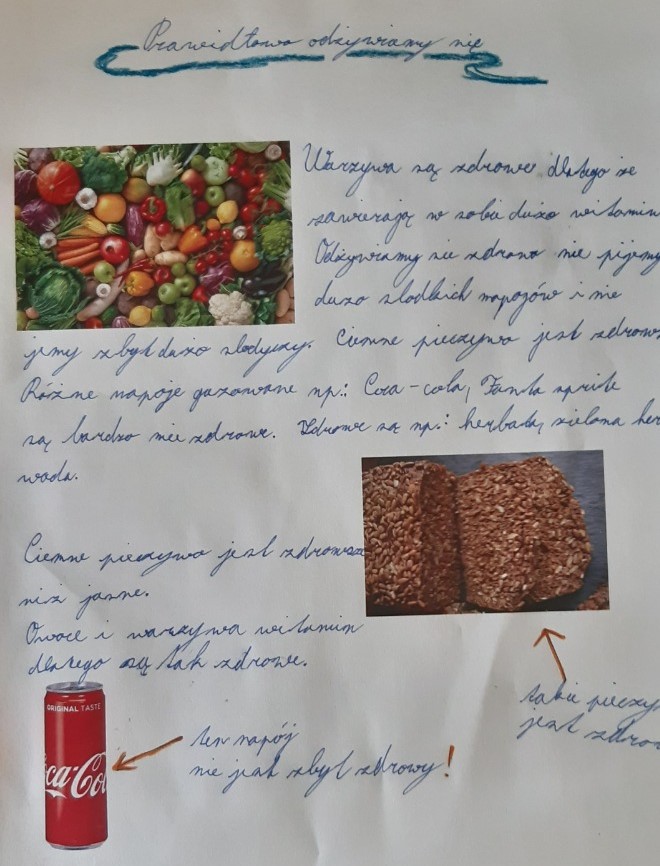 Prawidłowo odżywiamy się
Warzywa są zdrowe dlatego że
zawierają w sobie dużo witamin
Odżywiamy sie zdrowo nie pijemy
dużo słodkich napojów i nie
jemy zbyt dużo słodyczy. Ciemne pieczywo jest zdrows
Różne napoje gazowane np.: Coca-cola, Fanta sprite
są bardzo nie zdrowe. Zdrowe są np.: herbada, zielona her
wada.
Ciemne pieczywo jest zdrowsze
niż jasne.
Owoce i warzywa witamin
dlatego są tak zdrowe.
takie pieczy
jest zdrow
ORIGINAL TASTE
ten napój
nie jest zbyt zdrowy!
ca-Co